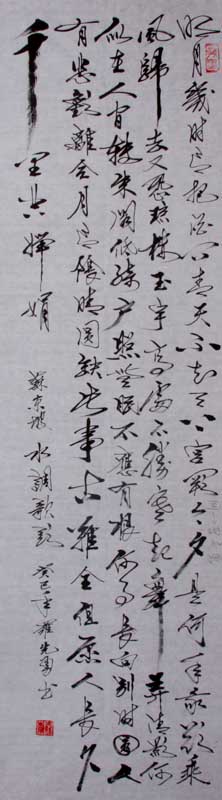 明月幾時有把酒問青天不知天上宮闕今夕是何年我欲乘
風歸去又恐瓊樓玉宇高處不勝寒起舞弄清影何
似在人间轉朱閣低綺戶照無眠不應有恨何事長向別時圓人
有悲歡離合月有陰晴圓缺此事古難全但願人長久
千里共嬋娟
蘇東坡 水調歌頭 癸巳年 書